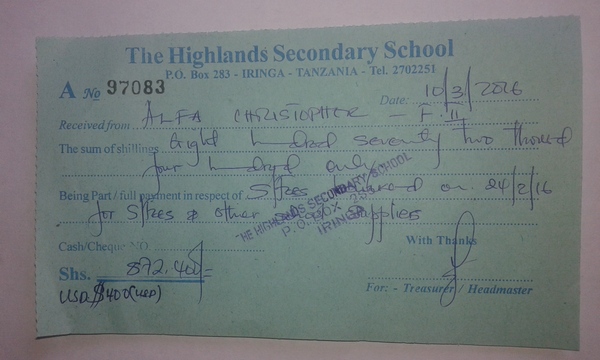 The Highlands Secondary School
P.O. Box 283 - IRINGA - TANZANIA - Tel. 2702251
A No 97083
Date: 10/3/2016
Received from ALFA CHRISTOPHER - F. II
The sum of shillings Eight hundred seventy two thousand
four hundred only
Being Part / full payment in respect of on 24/2/16
for & other supplies
THE HIGHLANDS SECONDARY SCHOOL
P.O. BOX 283
IRINGA
Cash/Cheque NO.
With Thanks
Shs. 872.400/=
USD $400 (USD)
For: - Treasurer / Headmaster